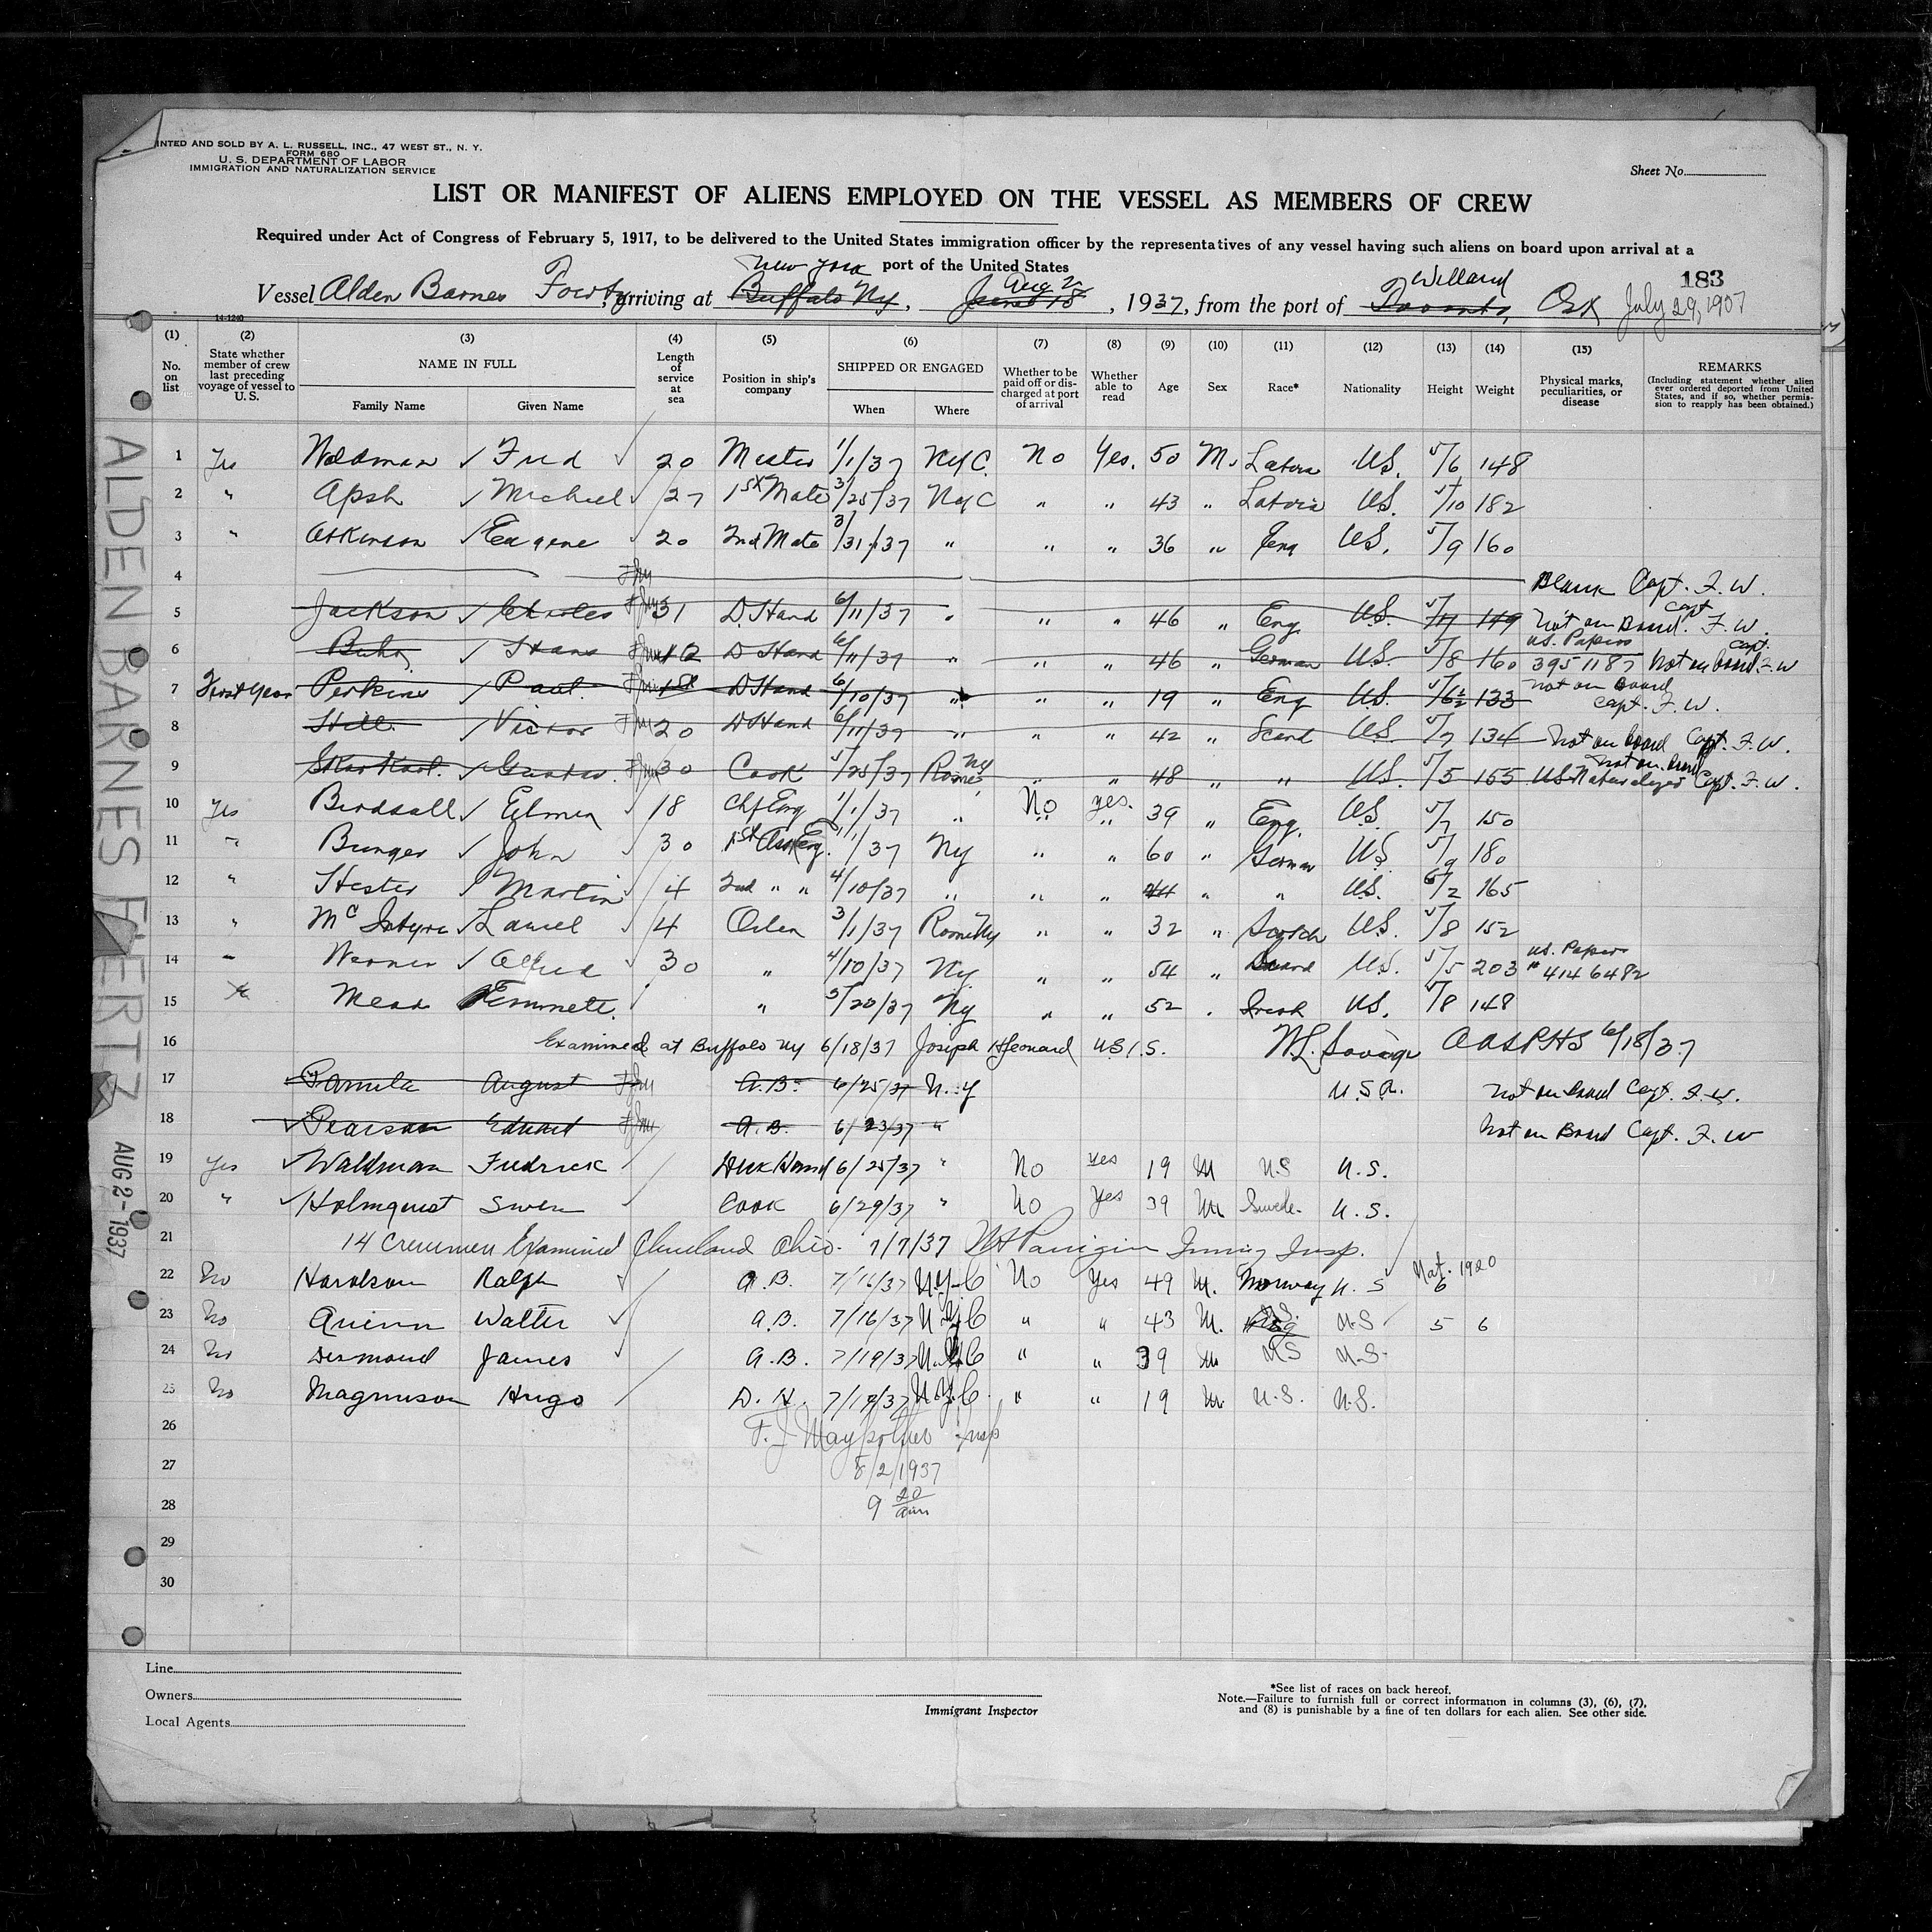 INTED AND SOLD BY A. L. RUSSELL, INC., 47 WEST ST., N. Y.
FORM 680
U. S. DEPARTMENT OF LABOR
IMMIGRATION AND NATURALIZATION SERVICE
Sheet No.
LIST OR MANIFEST OF ALIENS EMPLOYED ON THE VESSEL AS MEMBERS OF CREW
Required under Act of Congress of February 5, 1917, to be delivered to the United States immigration officer by the representatives of any vessel having such aliens on board upon arrival at a
New York port of the United States
Aug 2 Willard 183
Vessel Alden Barnes arriving at Buffalo Ny, June 18, 1937, from the port of Toronto, July 29, 1907
14-1240
(1) (2) (3) (4) (5) (6) (7) (8) (9) (10) (11) (12) (13) (14) (15)
No. on list State whether member of crew last preceding voyage of vessel to U.S. NAME IN FULL Length of service at sea Position in ship's company SHIPPED OR ENGAGED Whether to be paid off or discharged at port of arrival Whether able to read Age Sex Race* Nationality Height Weight Physical marks, peculiarities, or disease REMARKS (Including statement whether alien ever ordered deported from United States, and if so, whether permission to reapply has been obtained.)
Family Name Given Name When Where
1 Yes Fred 20 Master 1/1/37 NYC. No Yes. 50 M. Latvia US. 5/6 148
2 " Apsh Michael 27 1st Mate 3/25/37 NYC " " 43 " Latvia US. 5/10 182
3 " Atkinson Eugene 20 2nd Mate 3/31/37 " " " 36 " Eng US. 5/9 160
4 Blank Capt. F. W.
5 Jackson Charles 31 D. Hand 6/11/37 " " " 46 " Eng. U.S. 149 Not on Board. Capt F. W.
6 Hans D Hand 6/11/37 " " " 46 " German U.S. 5/8 160 US. Papers 3951187 Not on board. Capt. F. W
7 First Year Perkins Paul 18 D Hand 6/10/37 " " " 19 " Eng U.S. 133 Not on Board Capt. F. W.
8 Victor 20 D Hand 6/11/37 " " " 42 " Scand U.S. 5/7 134 Not on board Capt. F. W.
9 Gustav 30 Cook 5/25/37 Rome Ny " " 48 " " U.S. 5/5 155 US Naturalized Not on Board Capt. F. W.
10 Yes Birdsall Elmer 18 Chf Eng 1/1/37 " No yes. 39 " Eng. U.S. 5/7 150
11 " Bunger John 30 1st Asst Eng. 1/1/37 Ny " " 60 " German U.S. 5/9 180
12 " Hester Martin 4 2nd " " 4/10/37 " " " " " U.S. 6/2 165
13 " McIntyre 4 Oiler 3/1/37 Rome Ny " " 32 " Scotch U.S. 5/8 152
14 " Werner Alfred 30 " 4/10/37 Ny. " " 54 " U.S. 5/5 203 US. Papers # 4146482
15 Mead Emmett. " 5/20/37 Ny " " 52 " Irish US. 5/8 148
16 Examined at Buffalo Ny 6/18/37 Joseph H Leonard U S I. S. W L. Savage 6/18/37
17 August A. B. 6/25/37 N. Y U. S. A. Not on Board Capt. F. W.
18 Pearson Edward A. B. 6/23/37 " Not on Board Capt. F. W
19 Yes Waldman Fredrick Deck Hand 6/25/37 " No yes 19 M U.S U. S.
20 " Holmquist Swen Cook 6/29/37 " No Yes 39 M Swede. U. S.
21 14 Crewmen Examined Cleveland Ohio. 7/7/37 Immig Insp.
22 No Haroldson Ralph A. B. 7/16/37 N.Y.C No Yes 49 M. Norway U. S 6 Nat. 1920
23 No Quinn Walter A. B. 7/16/37 N.Y.C " " 43 M. U.S 5 6
24 No Desmond James A. B. 7/19/37 N.Y.C " " 39 M U S U.S.
25 No Magnuson Hugo D. H. 7/19/37 N.Y.C. " " 19 M. U.S. U.S.
26 F. J. Maypother Insp
27 8/2/1937
28 9 20/am
29
30
ALDEN BARNES FERTZ
AUG 2-1937
Line
Owners
Local Agents
Immigrant Inspector
*See list of races on back hereof.
Note.—Failure to furnish full or correct information in columns (3), (6), (7),
and (8) is punishable by a fine of ten dollars for each alien. See other side.